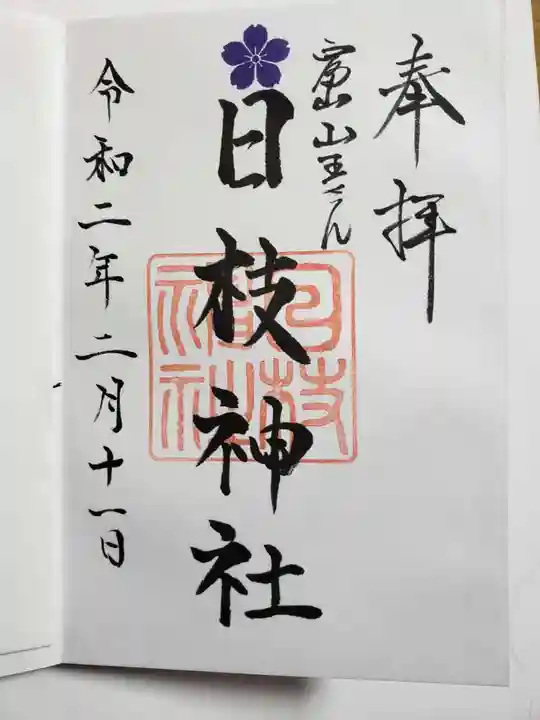 奉拝
富山山王さん
日枝神社
日枝神社
令和二年二月十一日